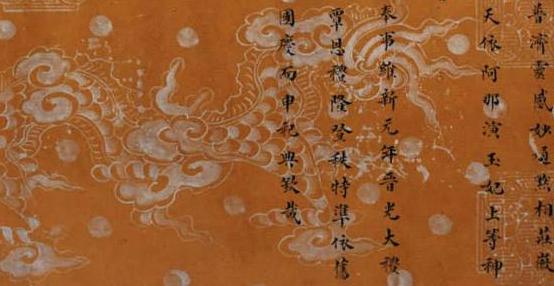 普濟靈感妙通默相莊徽
天依阿那演玉妃上等神
奉事維新元年晉光大禮
覃恩禮隆登秩特準依舊
國慶而申祀典欽哉